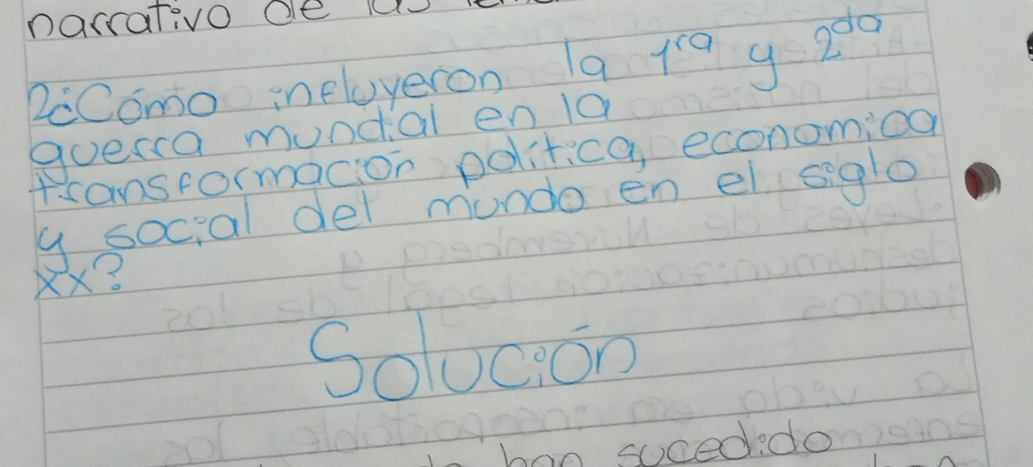 narrativo de las
2¿Cómo influyeron la 1ra y 2da
guerra mundial en la
transformación política, economica
y social del mundo en el siglo
xx?
Solución
han sucedido